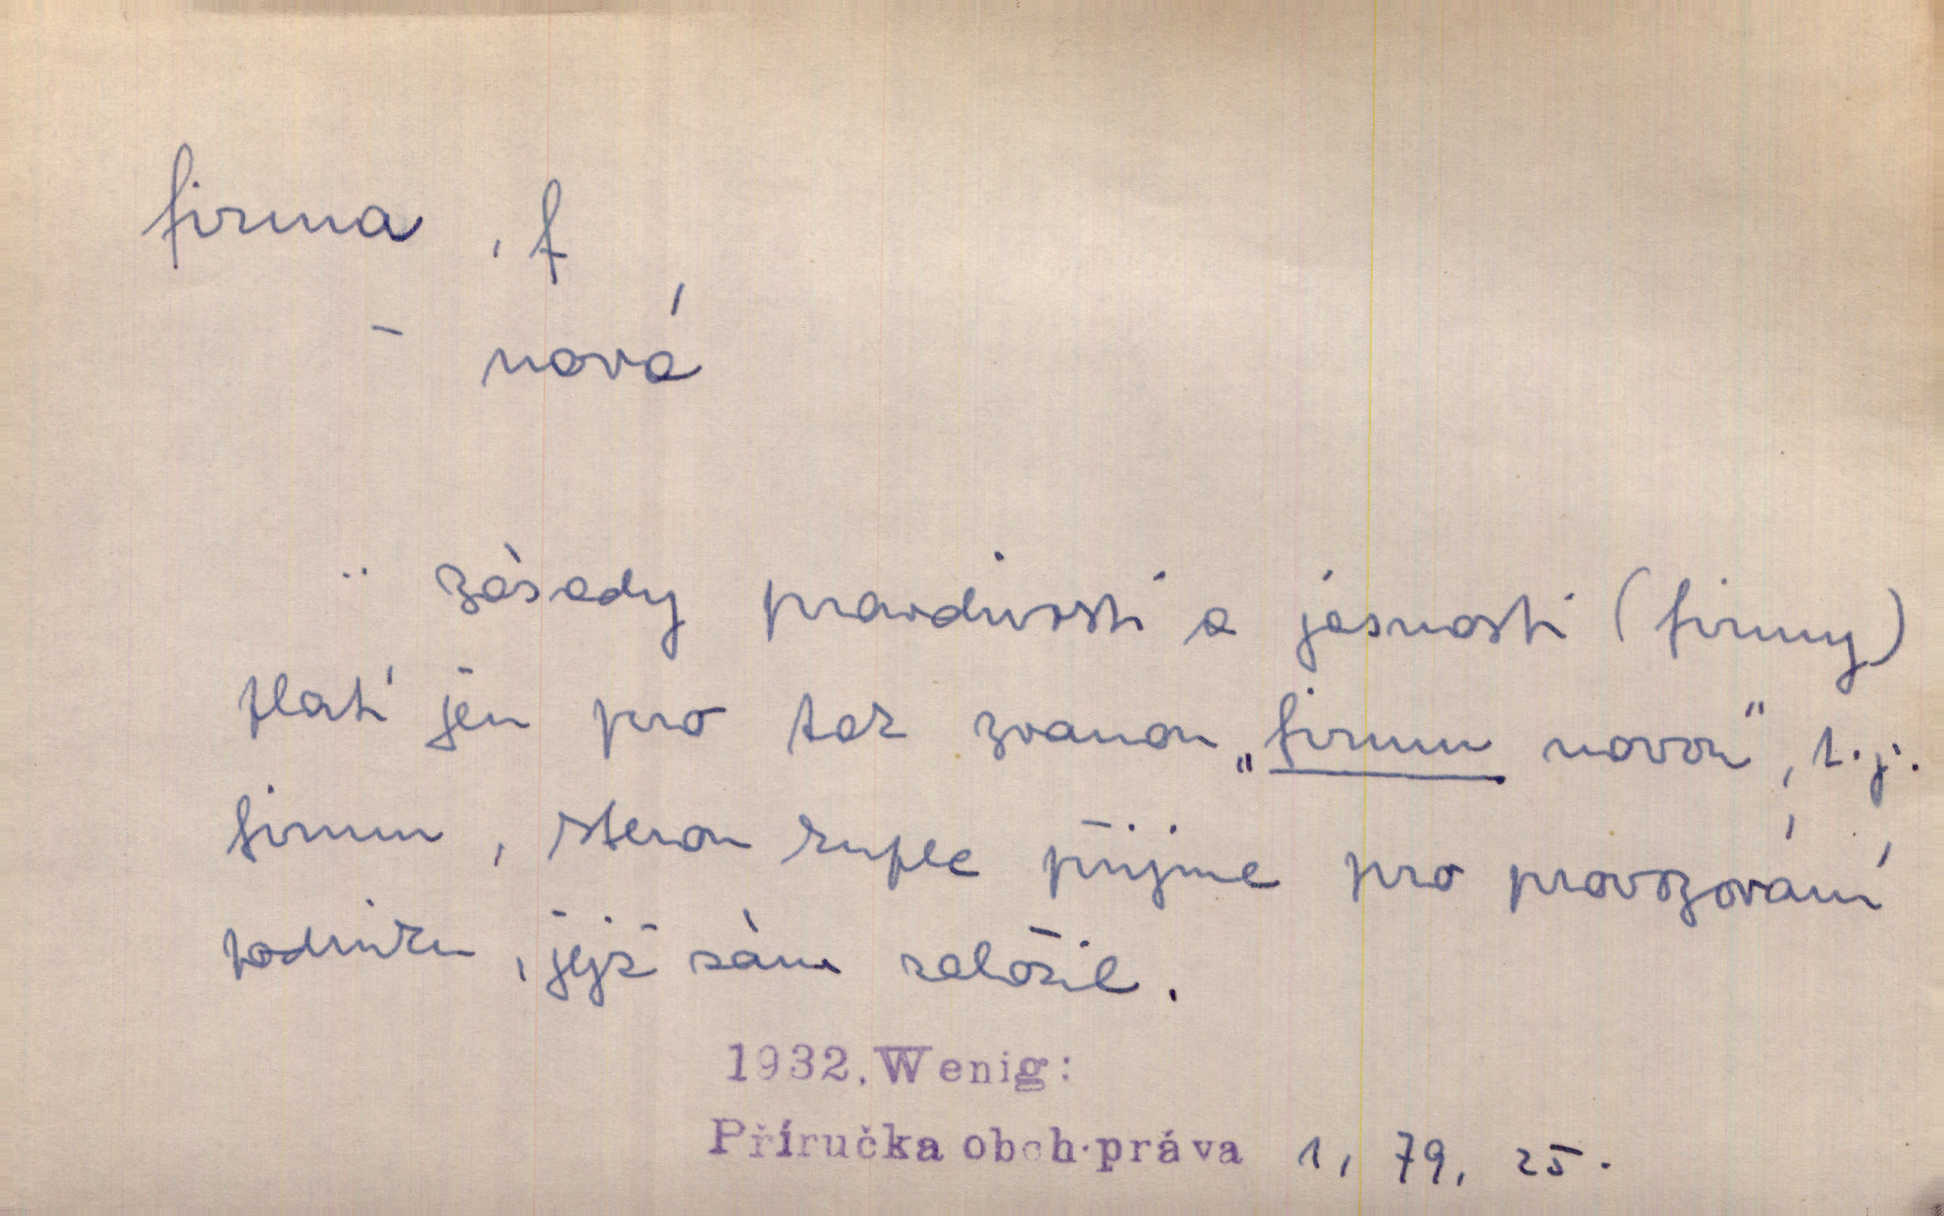 firma, f
– nová
.. zásady pravdivosti a jasnosti (firmy)
platí jen pro tak zvanou „firmu novou", t. j.
firmu, kterou kupec přijme pro provozování
podniku, jejž sám založil.
1932. Wenig:
Příručka obch. práva 1, 79, 25.